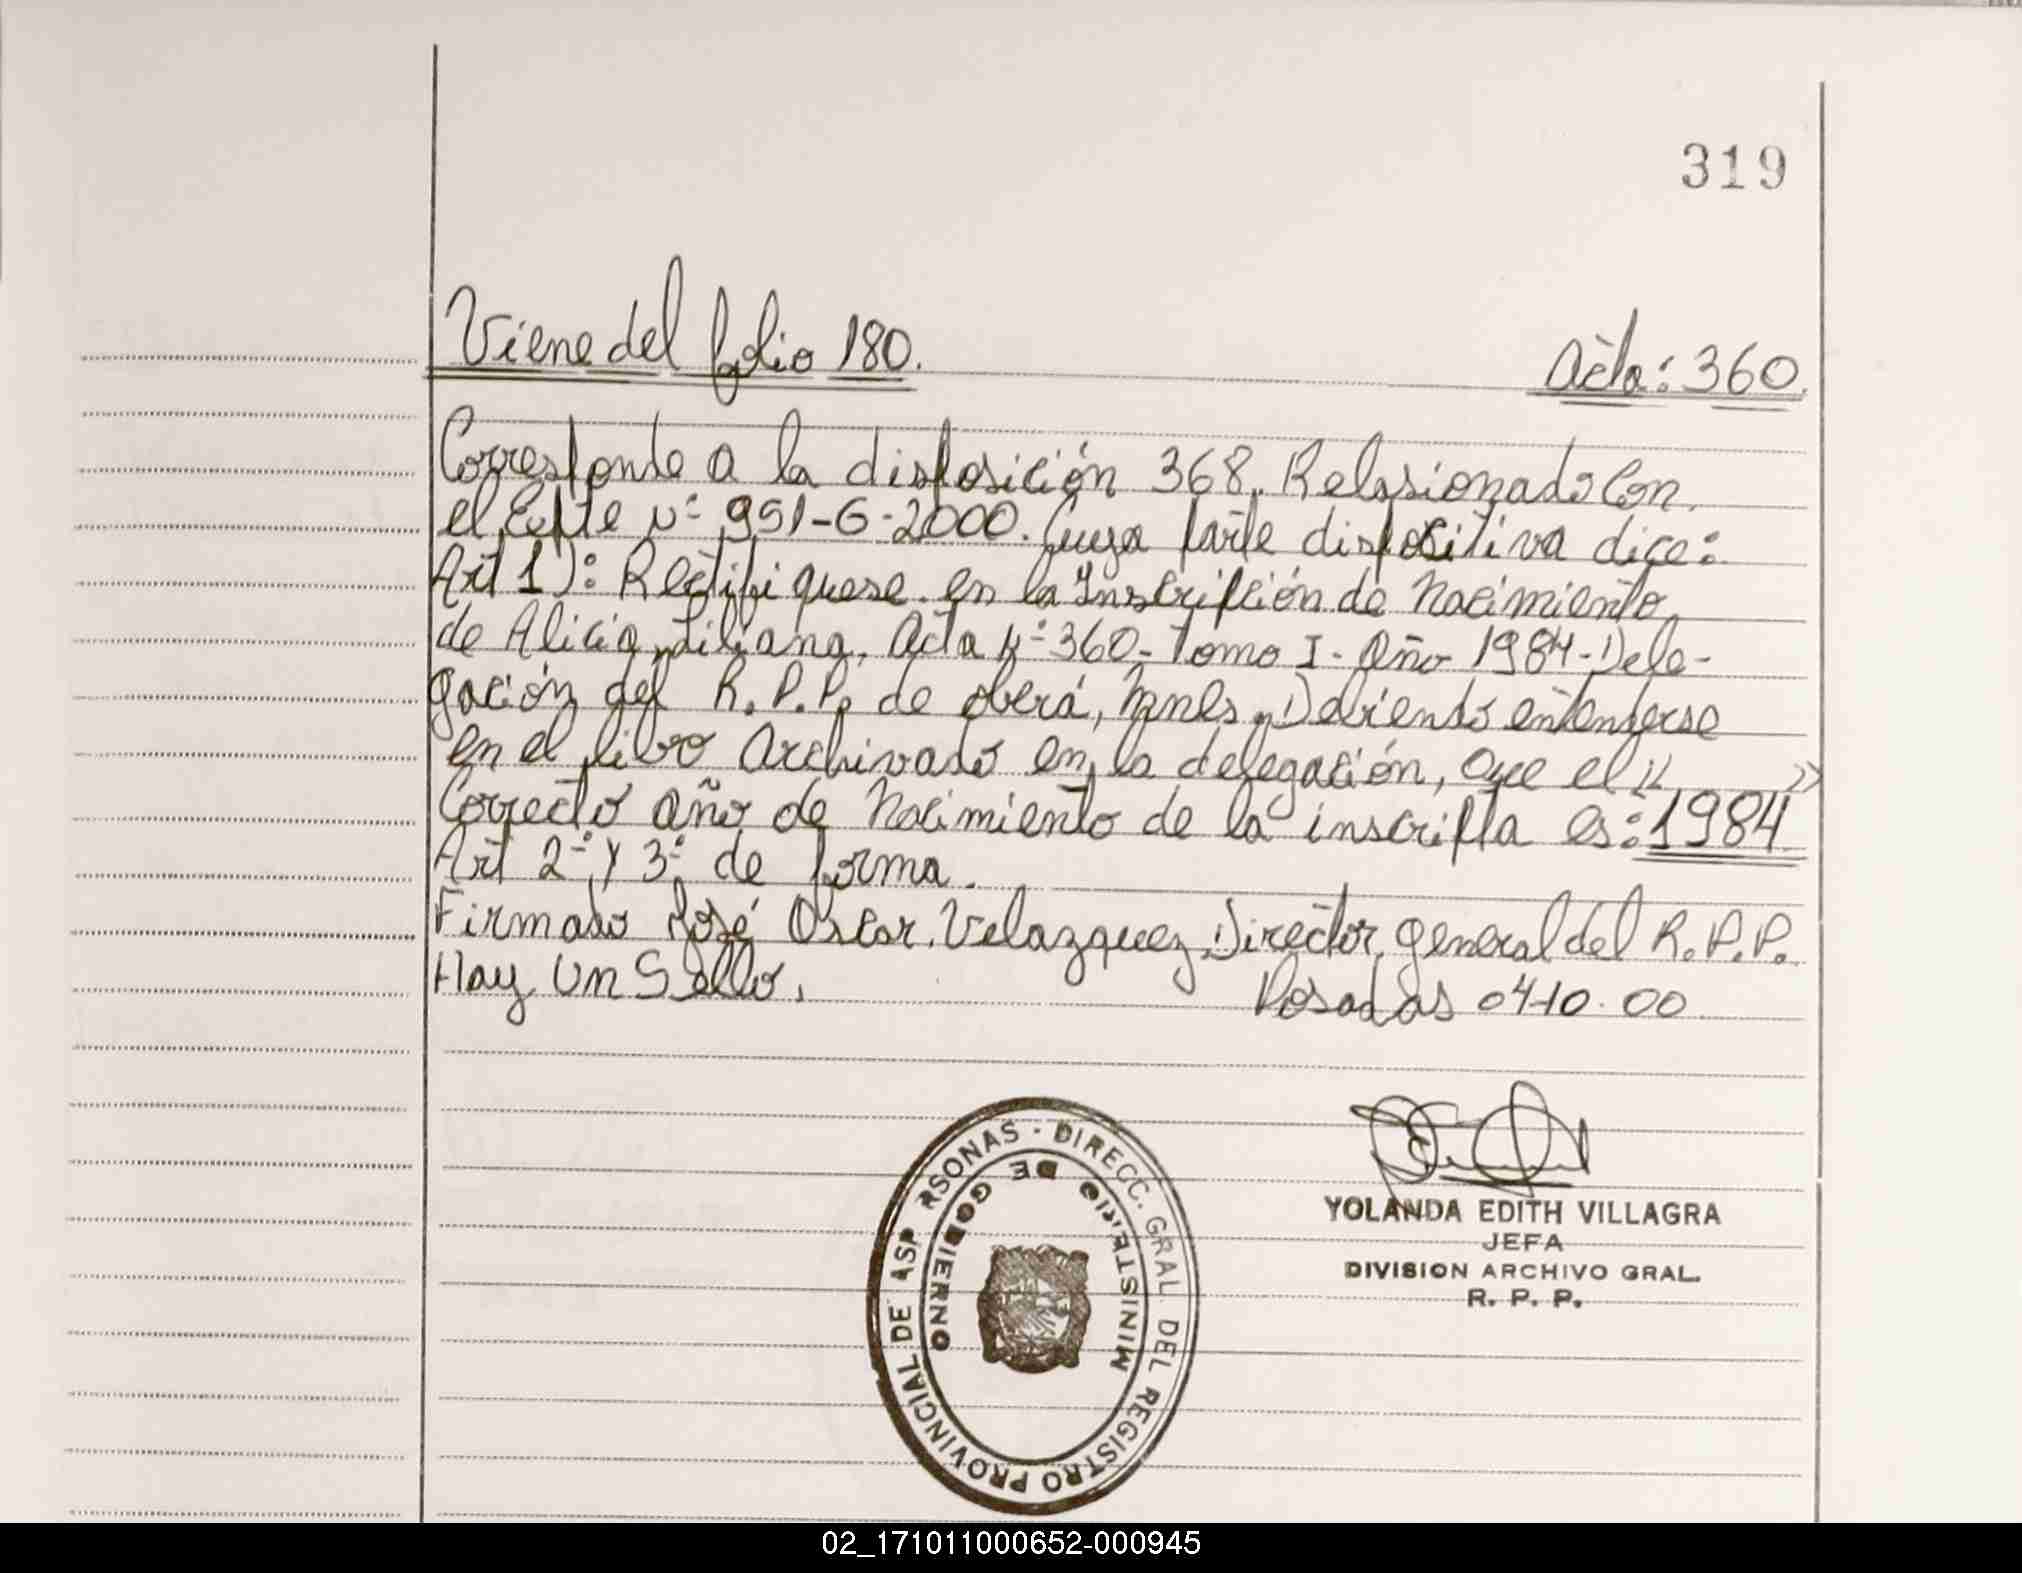 319
Viene del folio 180.
Acta: 360.
Corresponde a la disposición 368. Relasionado Con
el Expte Nº 951-G-2000. Cuya parte dispositiva dice:
Art 1): Rectifiquese en la Inscripción de Nacimiento
de Alicia Liliana, Acta Nº 360- Tomo I- Año 1984- Dele-
gación del R.P.P. de oberá, Mnes. Debiendo entenderse
en el libro Archivado en la delegación, que el "
Correcto año de Nacimiento de la inscripta es: 1984
Art 2º y 3º de forma.
Firmado José Oscar Velazquez, Director general del R.P.P.
Hay Un Sello.
Posadas 04-10-00
YOLANDA EDITH VILLAGRA
JEFA
DIVISION ARCHIVO GRAL.
R. P. P.
DIRECC. GRAL. DEL REGISTRO PROVINCIAL DE ASP RSONAS
MINISTERIO DE GOBIERNO
02_171011000652-000945